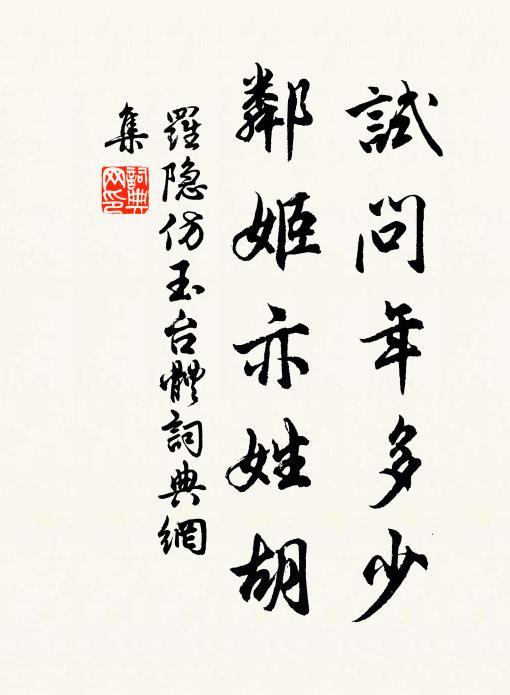 試問年多少
鄰姬亦姓胡
羅隐仿玉台體詞典網
集
詞典
网印